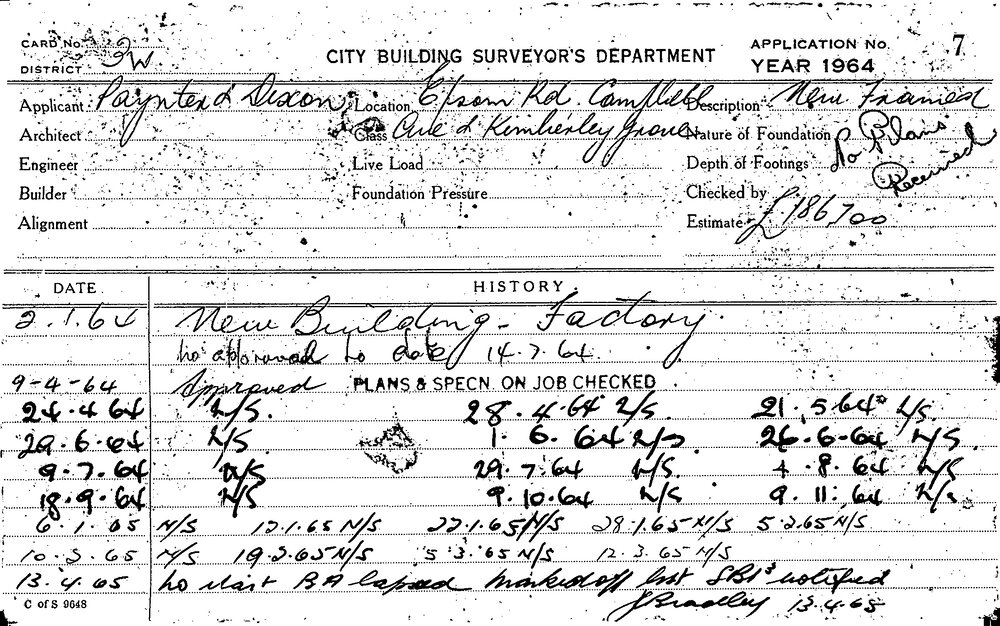 CARD No. 2W CITY BUILDING SURVEYOR'S DEPARTMENT APPLICATION No. 7
DISTRICT YEAR 1964
Applicant Paynter & Dixon Location Epsom Rd. Campbell Description New Framed
Architect Class Ave & Kimberley Grove Nature of Foundation No Plans
Engineer Live Load Depth of Footings Received
Builder Foundation Pressure Checked by
Alignment Estimate £186,700
DATE HISTORY
2.1.64 New Building - Factory.
No approval to date 14.7.64
9-4-64 Approved PLANS & SPECN. ON JOB CHECKED
24.4.64 N/S. 28.4.64 N/S 21.5.64 N/S
29.6.64 N/S 1.6.64 N/S 26-6-64 N/S
9.7.64 N/S 29.7.64 N/S 4.8.64 N/S
18.9.64 N/S 9.10.64 N/S 9.11.64 N/S
6.1.65 N/S 12.1.65 N/S 22.1.65 N/S 28.1.65 N/S 5.2.65 N/S
10.2.65 N/S 19.2.65 N/S 5.3.65 N/S 12.3.65 N/S
13.4.65 No start BA lapsed Marked off list notified
J Bradley 13.4.65
C of S 9648